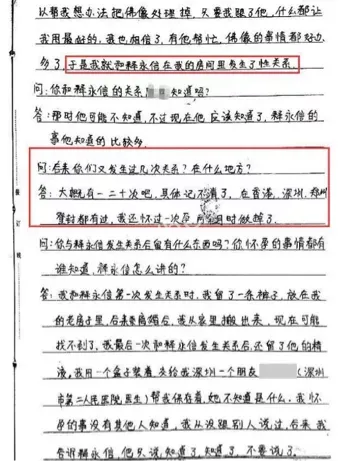 以帮我想办法把佛像处理掉,只要我跟了他,什么都让
我用最好的,我也相信了,有他帮忙,佛像的事情都好办
多了,于是我就和释永信在我的房间里发生了性关系。
问:你和释永信的关系 知道吗?
答:那时他可能不知道,不过现在他应该知道了,释永信的
事他知道的比较多。
问:后来你们又发生过几次关系?在什么地方?
答:大概有一二十次吧,具体记不清了,在香港、深圳、郑州
登封都有过,我还怀过一次孕,所 时做掉了。
问:你与释永信发生关系后留有什么东西吗?你怀孕的事情都有
谁知道,释永信怎么讲的?
答:我和释永信第一次发生关系时,我留了一条裤子,放在我
的老房子里,后来 婚后,我从家里搬出来,现在可能
找不到了,我最后一次和释永信发生关系后,还留了他的精
液,我用一个盒子装着交给我深圳一个朋友 (深圳
市第二人民医院医生)帮我保存着,她不知道是什么,我怀
孕的事没有其他人知道,我从没跟别人说过,后来我
告诉释永信,他只说,知道了,知道了,不要说了。